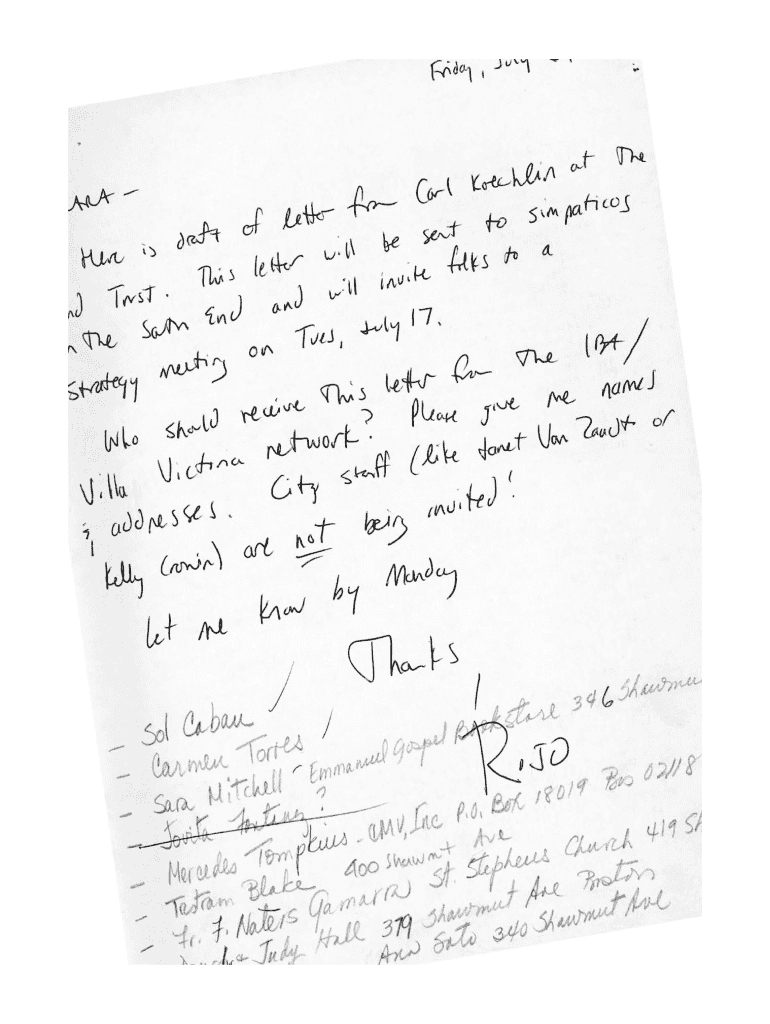 Friday, July
ARA -
Here is draft of letter from Carl Koechlin at the
nd Trust. This letter will be sent to simpaticos
n the South End and will invite folks to a
strategy meeting on Tues, July 17.
Who should receive this letter from the IBA/
Villa Victoria network? Please give me names
& addresses. City staff (like Janet Van Zandt or
Kelly Cronin) are not being invited!
Let me know by Monday
Thanks
- Sol Caban /
- Carmen Torres /
- Sara Mitchell - Emmanuel Gospel Bookstore 346 Shawmu
- Jovita Fontanez?
- Mercedes Tompkins - CMV, Inc P.O. Box 18019 Bos 02118
- Tastram Blake 400 Shawmt Ave
- Fr. F. Naters Gamarra St. Stephens Church 419 Sh
& Judy Hall 379 Shawmut Ave Boston
Ana Soto 340 Shawmut Ave